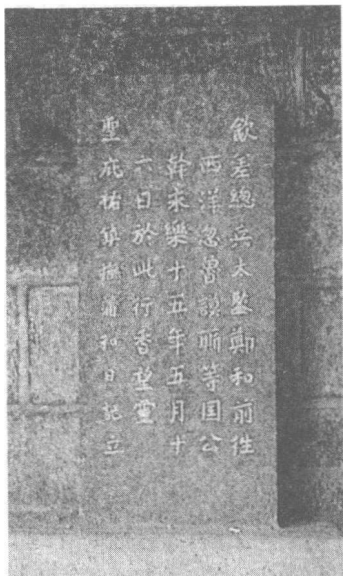 欽差總兵太監鄭和前往
西洋忽魯謨厮等国公
幹永樂十五年五月十
六日於此行香望靈
聖庇祐鎮撫蒲和日記立